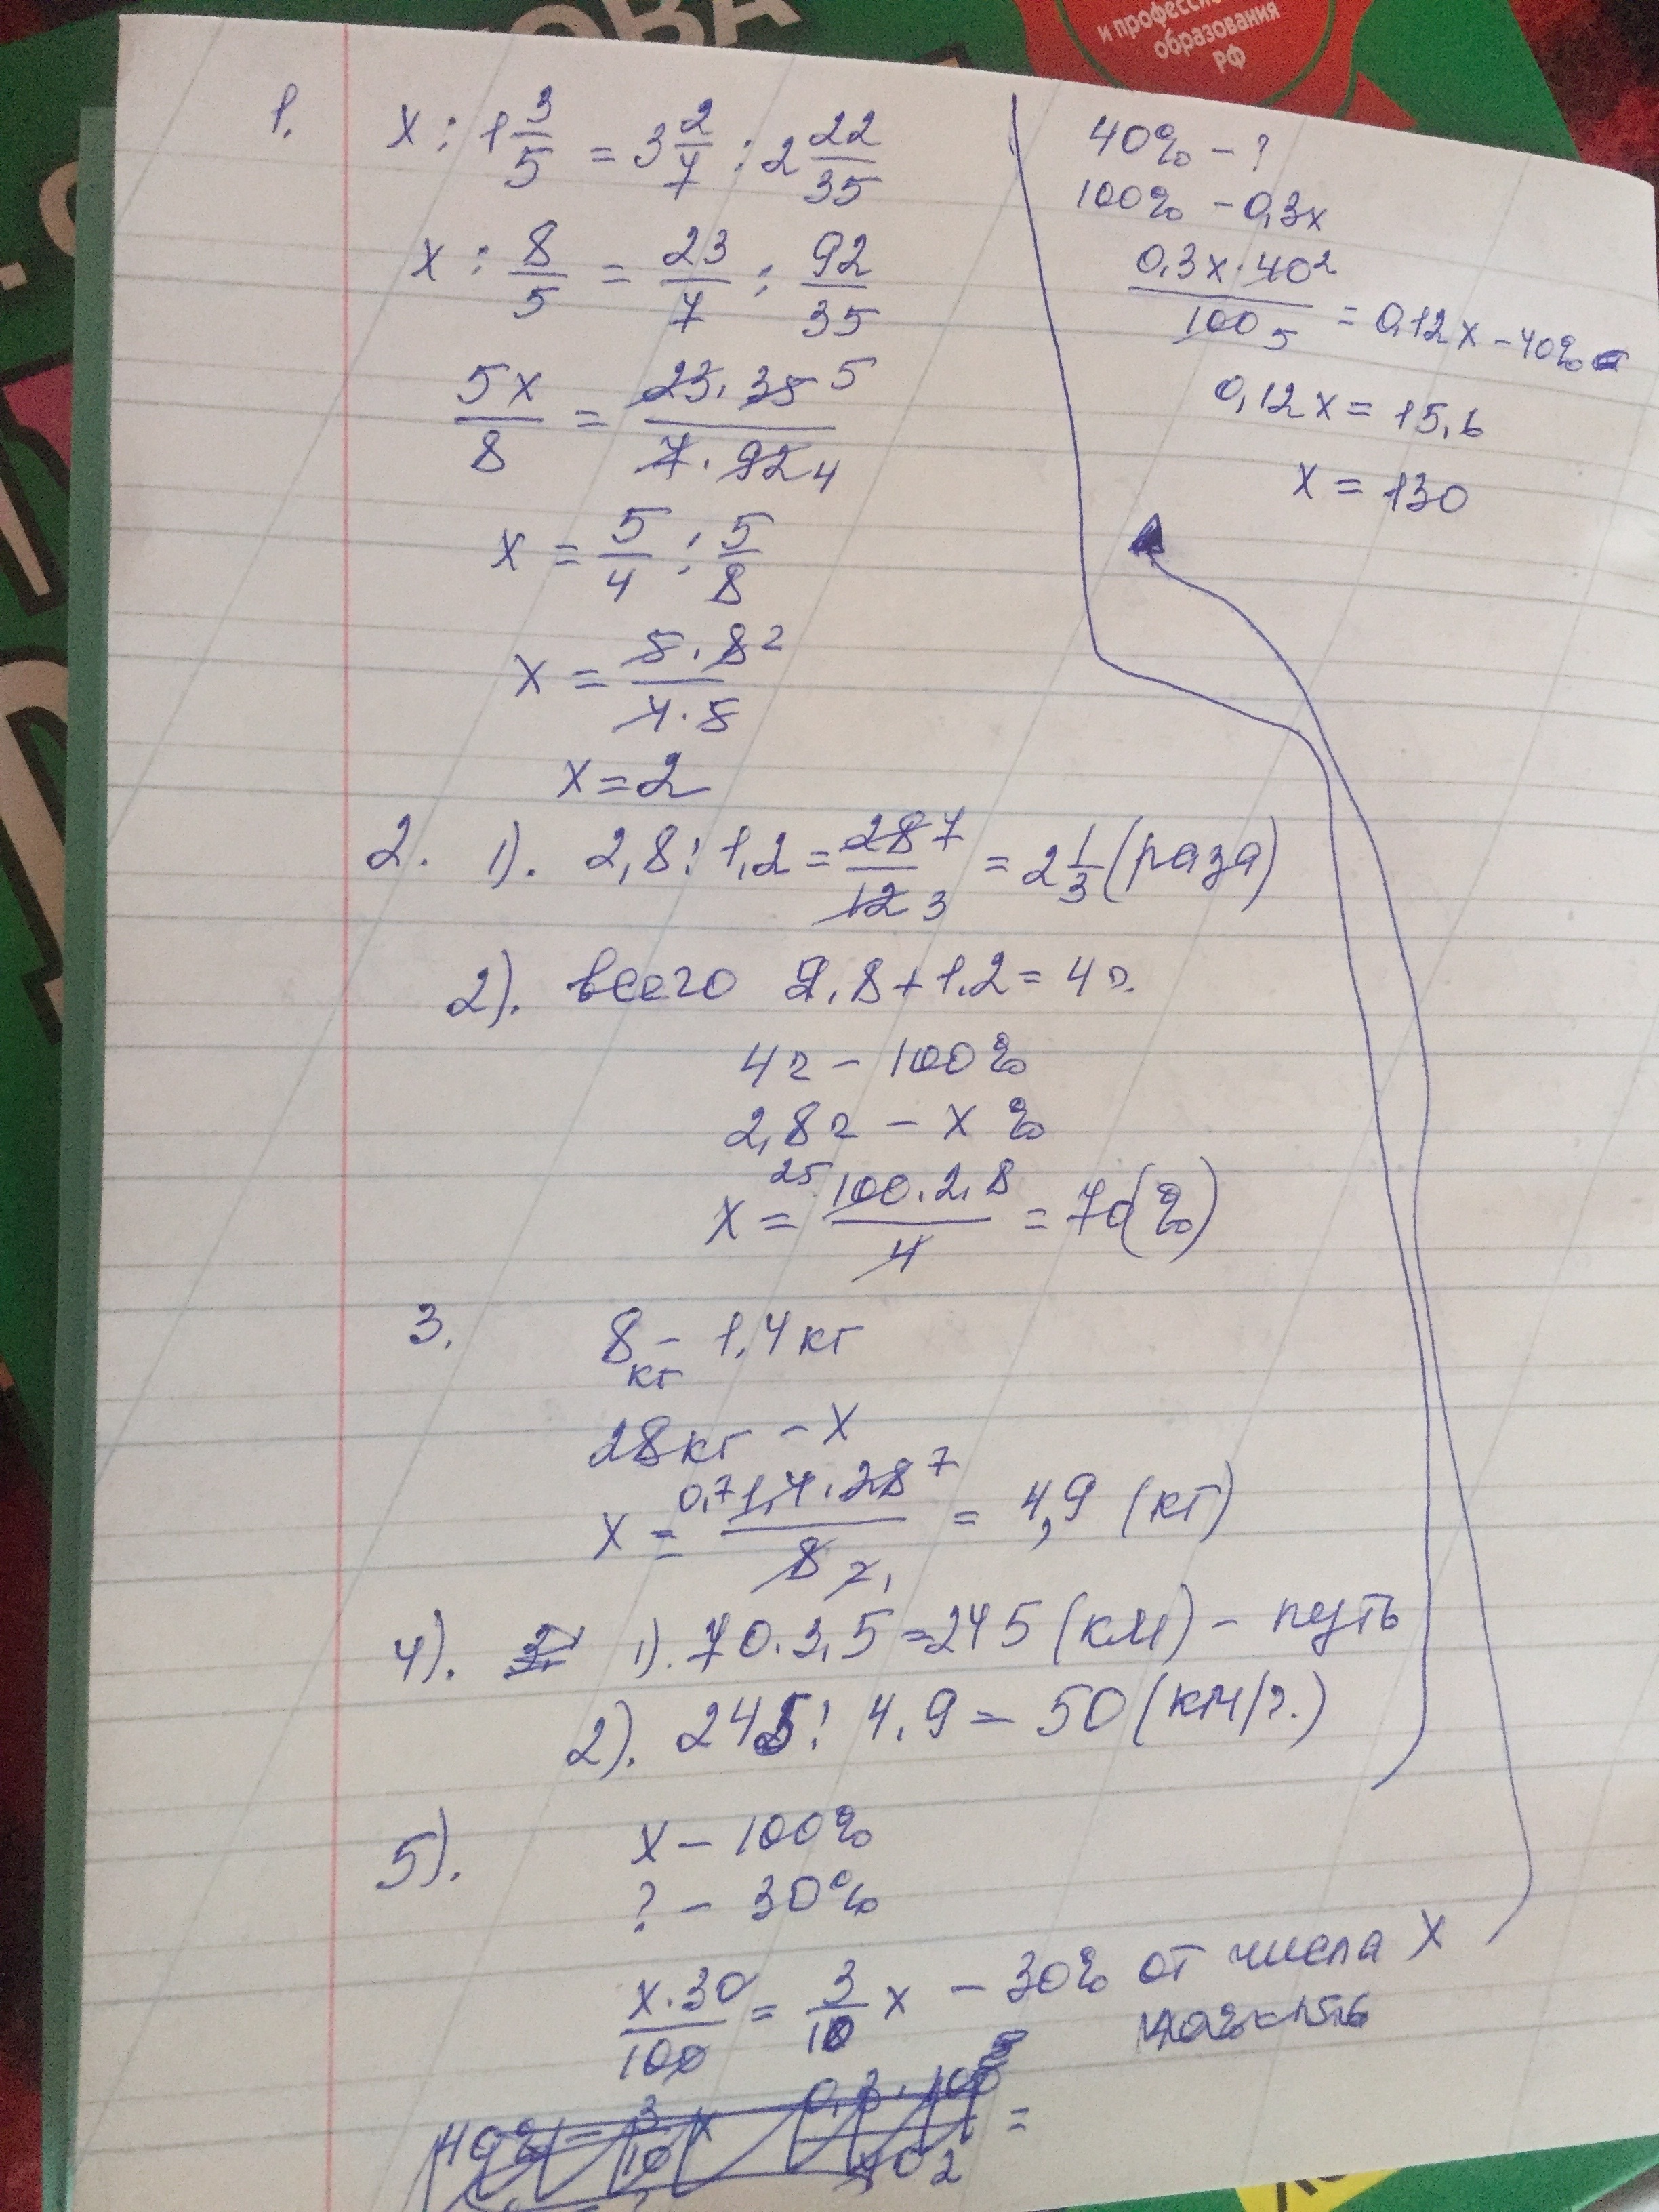 ОВА
и професси
образования
РФ
1. x : 1 3/5 = 3 2/7 : 2 22/35
x : 8/5 = 23/7 : 92/35
5x/8 = 23·35 5/7·92 4
x = 5/4 : 5/8
x = 5·8 2/4·5
x = 2
2. 1). 2,8 : 1,2 = 28 7/12 3 = 2 1/3 (раза)
2). всего 2,8 + 1,2 = 4 г.
4г – 100%
2,8г – x %
x = 25 100·2,8/4 = 70(%)
3. 8 кг – 1,4 кг
28 кг – x
x = 0,7 1,4·28 7/8 2 1 = 4,9 (кг)
4). 1). 70·3,5 = 245 (км) – путь
2). 245 : 4,9 = 50 (км/г.)
5). x – 100%
? – 30%
x·30/100 = 3/10 x – 30% от числа x
40% – 15,6
40% = 3/10 x 0,3·100 5/40 2 =
40% – ?
100% – 0,3x
0,3x·40 2/100 5 = 0,12x – 40%
0,12x = 15,6
x = 130